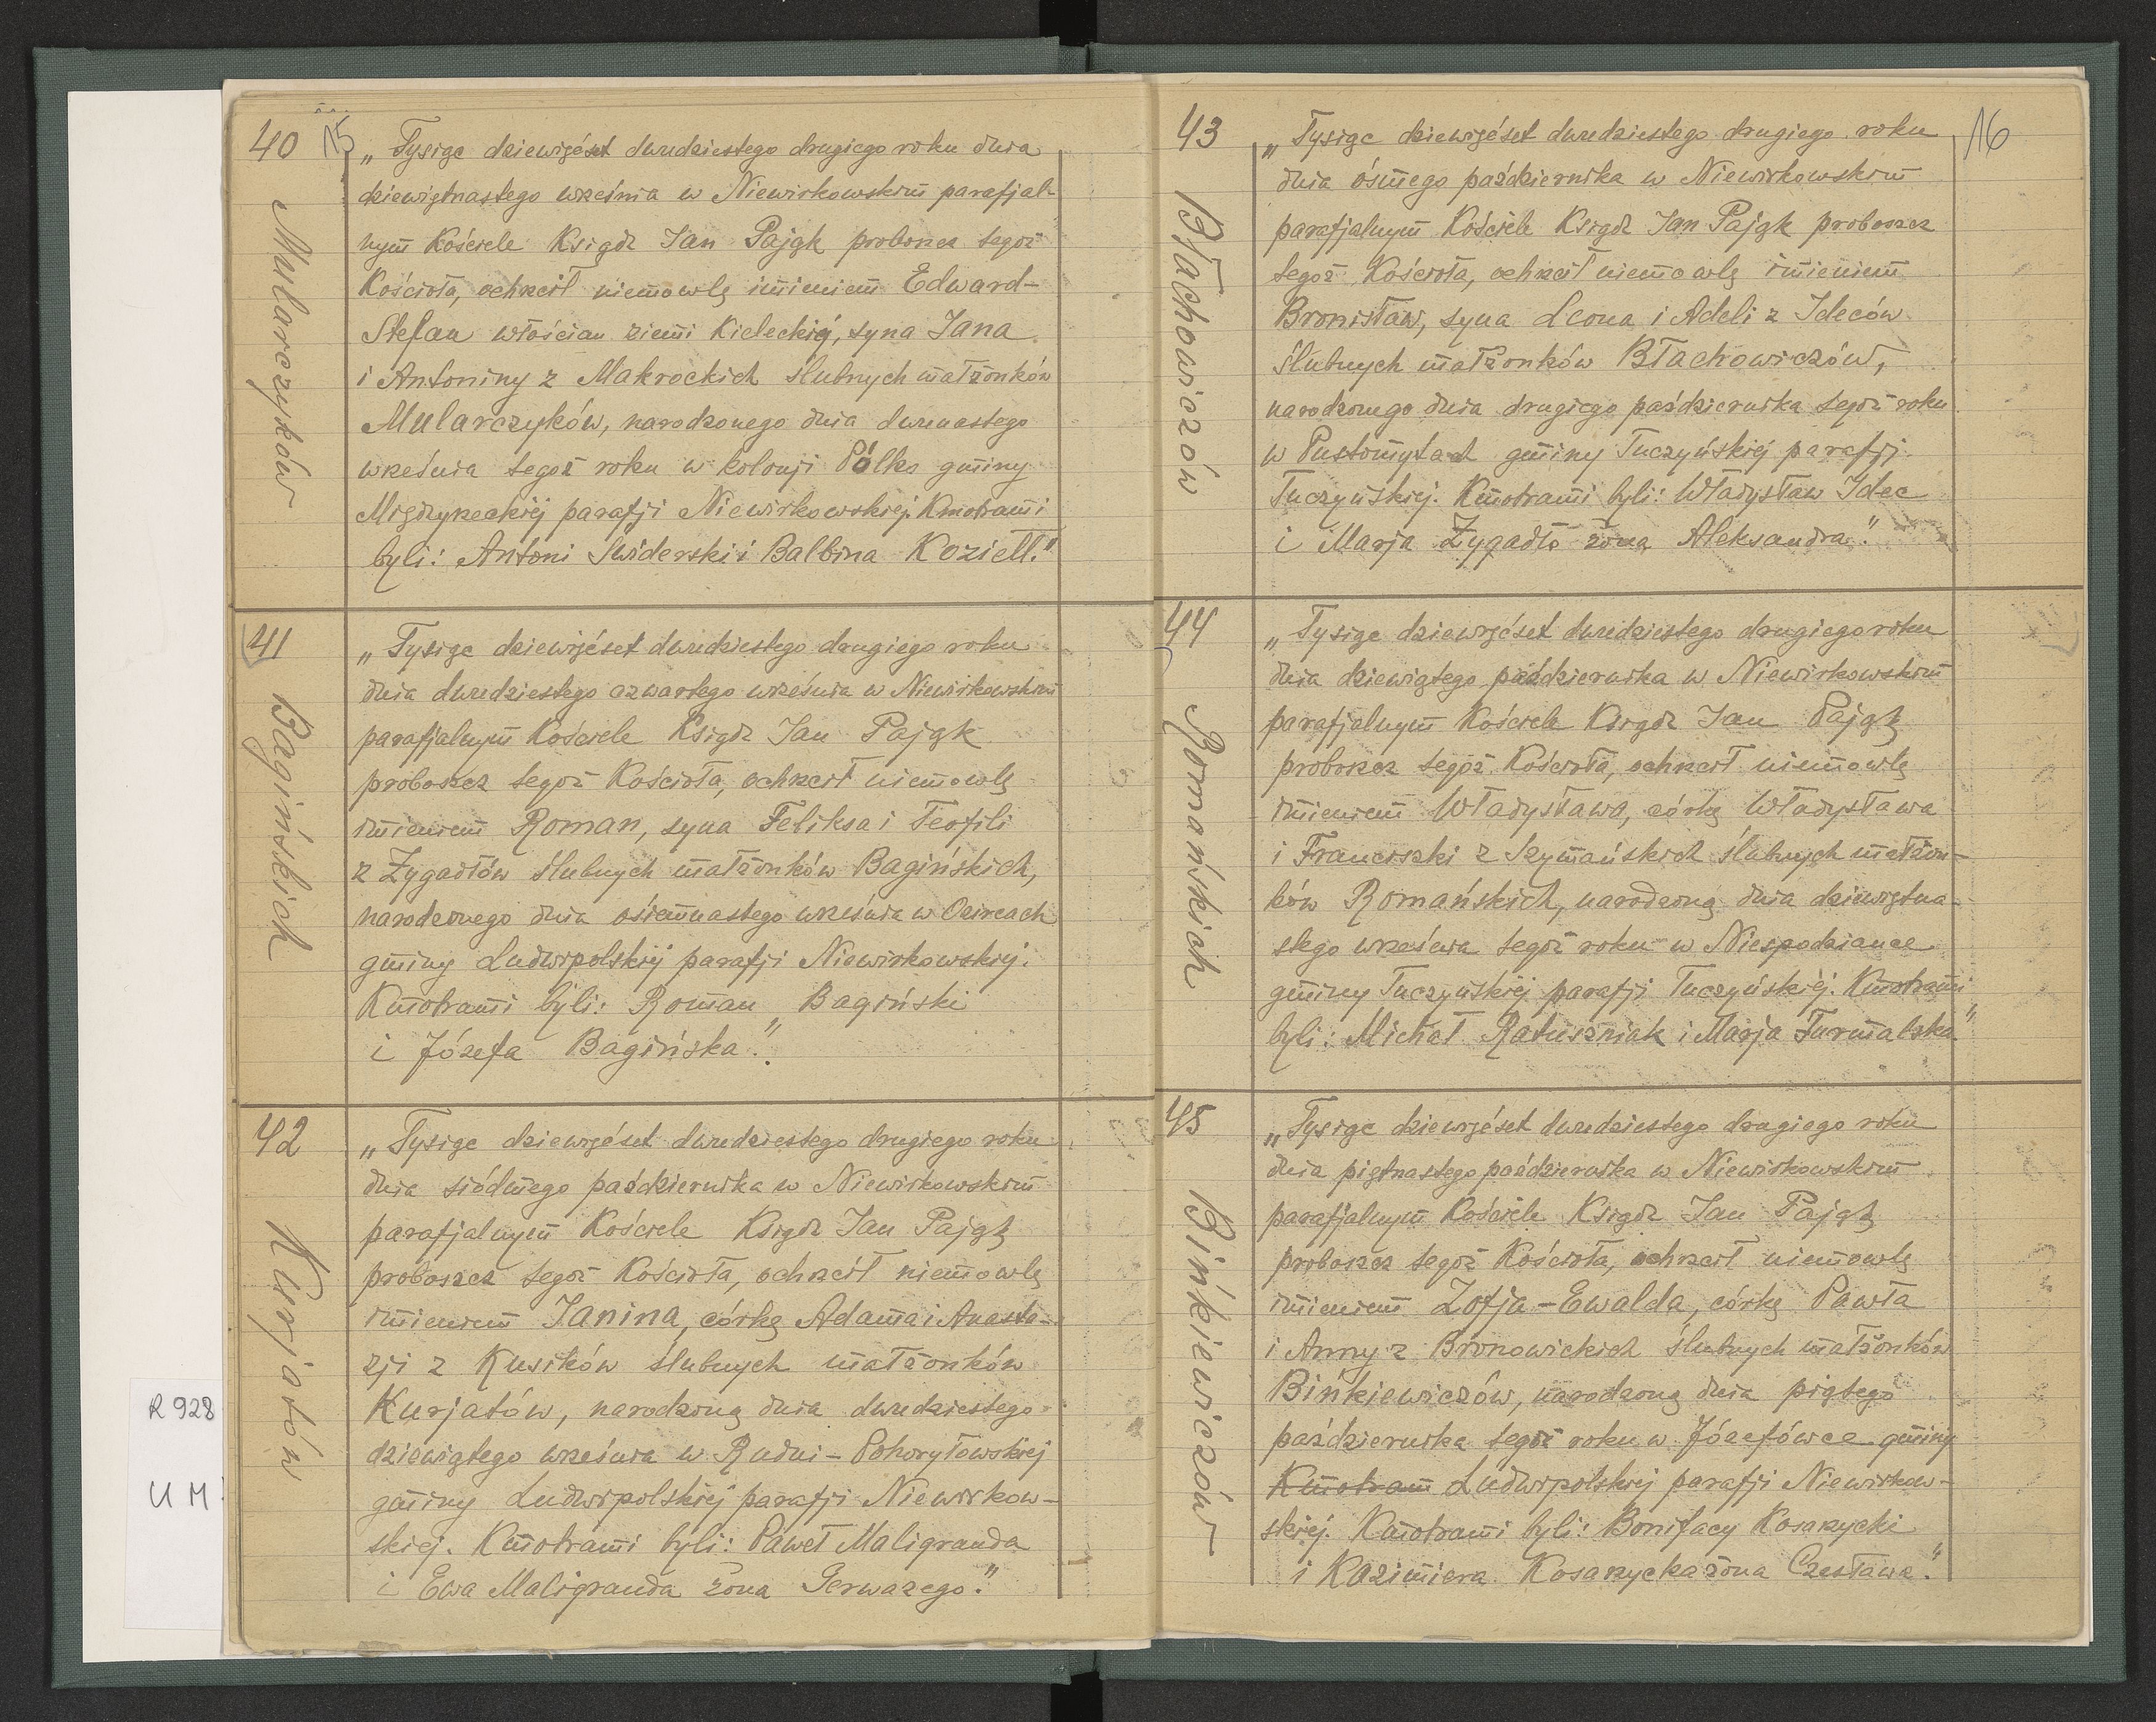 40
15
Mularczyków
„Tysiąc dziewięćset dwudziestego drugiego roku dnia
dziewiętnastego września w Niewirkowskim parafjal-
nym Kościele Ksiądz Jan Pająk proboszcz tegoż
Kościoła, ochrzcił niemowlę imieniem Edward-
Stefan włościan ziemi Kieleckiéj, syna Jana
i Antoniny z Makrockich ślubnych małżonków
Mularczyków, narodzonego dnia dwunastego
września tegoż roku w kolonji gminy
Międzyrzeckiéj parafji Niewirkowskiej. Kmotrami
byli: Antoni Świderski i Balbina Koziełł."
41
Bagińskich
„Tysiąc dziewięćset dwudziestego drugiego roku
dnia dwudziestego czwartego września w Niewirkowskim
parafjalnym Kościele Ksiądz Jan Pająk
proboszcz tegoż Kościoła, ochrzcił niemowlę
imieniem Roman, syna Feliksa i Teofili
z Zygadłów ślubnych małżonków Bagińskich,
narodzonego dnia ośiemnastego września w
gminy Ludwipolskiéj parafji Niewirkowskiéj.
Kmotrami byli: Roman Bagiński
i Józefa Bagińska."
42
Kurjatów
„Tysiąc dziewięćset dwudziestego drugiego roku
dnia siódmego października w Niewirkowskim
parafjalnym Kościele Ksiądz Jan Pająk
proboszcz tegoż Kościoła, ochrzcił niemowlę
imieniem Janina, córkę Adama i Anasta-
zji z Kusików ślubnych małżonków
Kurjatów, narodzoną dnia dwudziestego
dziewiątego września w Rudni-Pohoryłowskiej
gminy Ludwipolskiéj parafji Niewirkow-
skiej. Kmotrami byli: Paweł Maligranda
i Ewa Maligranda żona Gerwazego."
R 928
U M
43
16
Błachowiczów
„Tysiąc dziewięćset dwudziestego drugiego roku
dnia ósmego października w Niewirkowskim
parafjalnym Kościele Ksiądz Jan Pająk proboszcz
tegoż Kościoła, ochrzcił niemowlę imieniem
Bronisław, syna Leona i Adeli z Ideców
ślubnych małżonków Błachowiczów,
narodzonego dnia drugiego października tegoż roku
w Pustomytach gminy Tuczyńskiéj parafji
Tuczyńskiej. Kmotrami byli: Władysław Idec
i Marja Zygadło żona Aleksandra."
44
Romańskich
„Tysiąc dziewięćset dwudziestego drugiego roku
dnia dziewiątego października w Niewirkowskim
parafjalnym Kościele Ksiądz Jan Pająk
proboszcz tegoż Kościoła, ochrzcił niemowlę
imieniem Władysława, córkę Władysława
i Franciszki z Szymańskich ślubnych małżon-
ków Romańskich, narodzoną dnia dziewiętna-
stego września tegoż roku w Niespodziance
gminy Tuczyńskiéj parafji Tuczyńskiéj. Kmotrami
byli: Michał Ratuszniak i Marja Furmalska"
45
Bińkiewiczów
„Tysiąc dziewięćset dwudziestego drugiego roku
dnia piętnastego października w Niewirkowskim
parafjalnym Kościele Ksiądz Jan Pająk
proboszcz tegoż Kościoła, ochrzcił niemowlę
imieniem Zofja-Ewalda, córkę Pawła
i Anny z Bronowickich ślubnych małżonków
Bińkiewiczów, narodzoną dnia piątego
października tegoż roku w Józefówce gminy
Kmotram Ludwipolskiej parafji Niewirkow-
skiej. Kmotrami byli: Bonifacy Kosarzycki
i Kazimiera Kosarzycka żona Czesława."